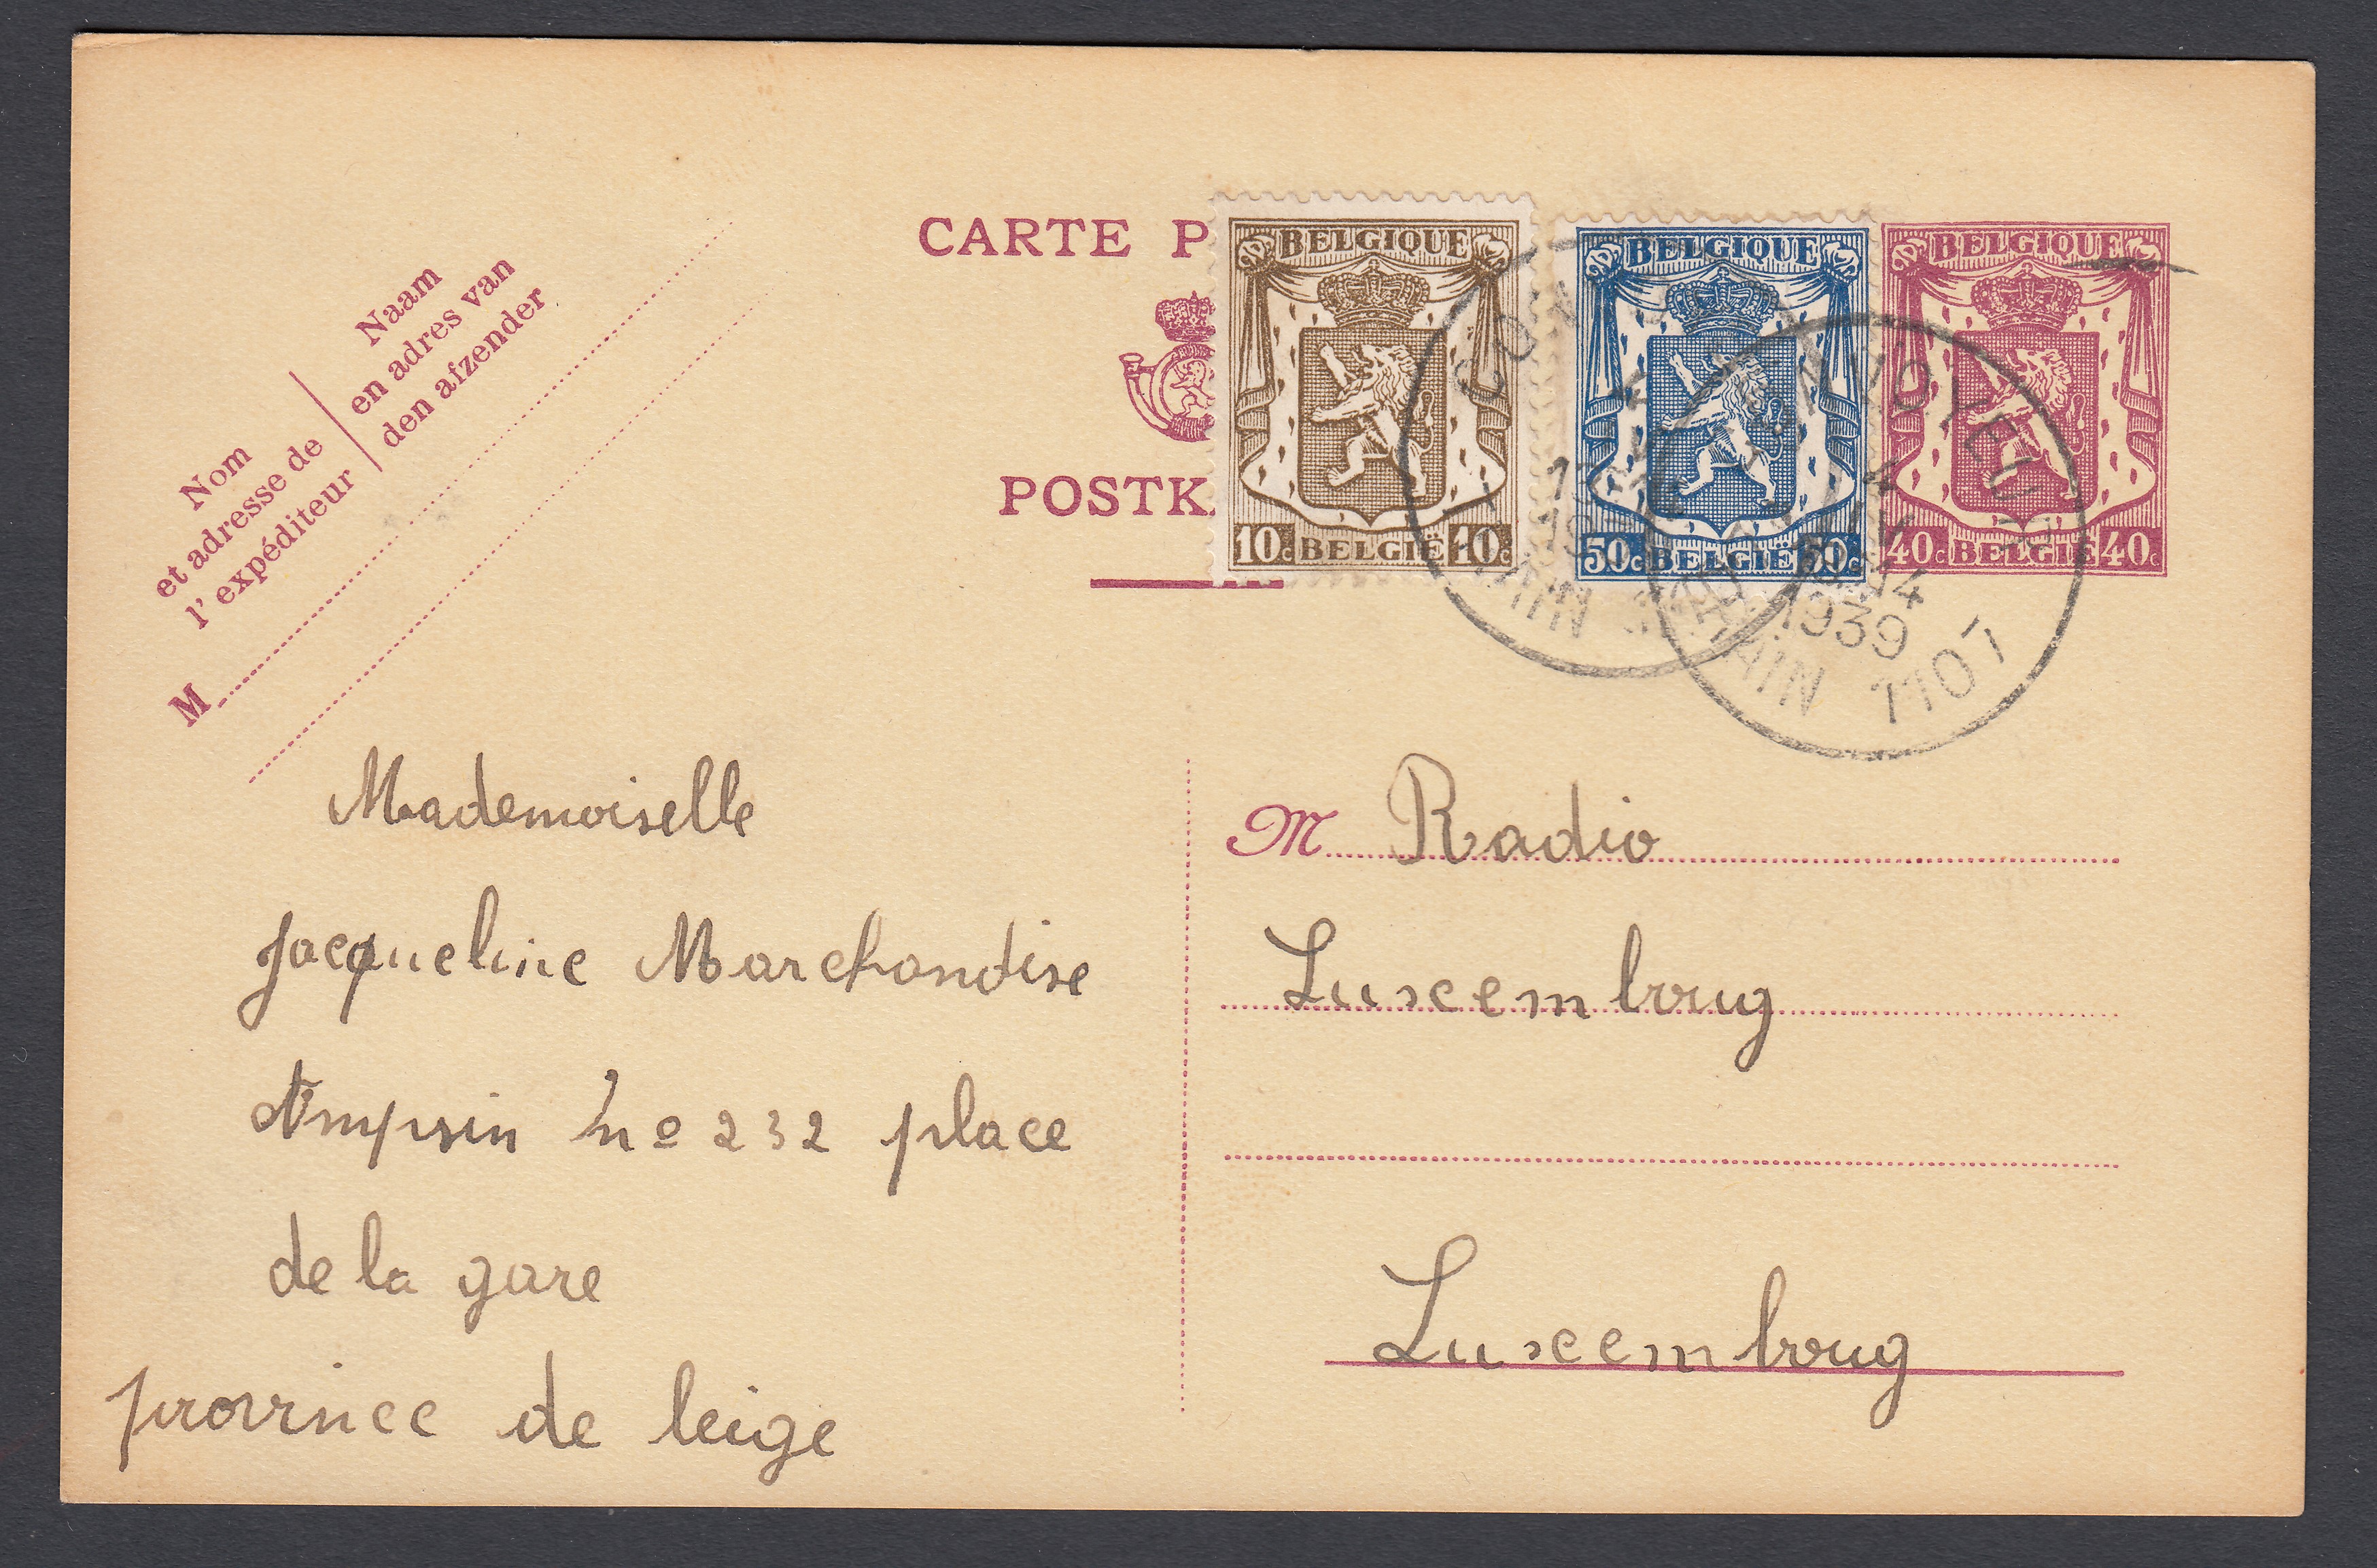 CARTE P
POSTK
BELGIQUE
10c BELGIË 10c
BELGIQUE
50c BELGIË 50c
BELGIQUE
40c BELGIË 40c
1939
1107
Naam
en adres van
den afzender
Nom
et adresse de
l'expéditeur
M
Mademoiselle
Jacqueline Marchandise
Ampsin no 232 place
de la gare
province de leige
M Radio
Luxcemboug
Luxcemboug